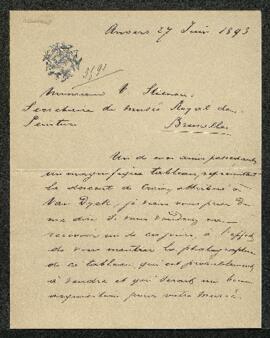 Anvers 27 Juin 1893
3593
Monsieur
Secrétaire du Musée Royal de
Peinture
Bruxelles
Un de mes amis possédant
un magnifique tableau, représentant
la descente de Croix, attribué à
Van Dyck, je viens vous prier de
me dire si vous voudriez me
recevoir un de ces jours à l'effet
de vous montrer la photographie
de ce tableau, qui est
à vendre et qui serait un
acquisition pour votre musée.